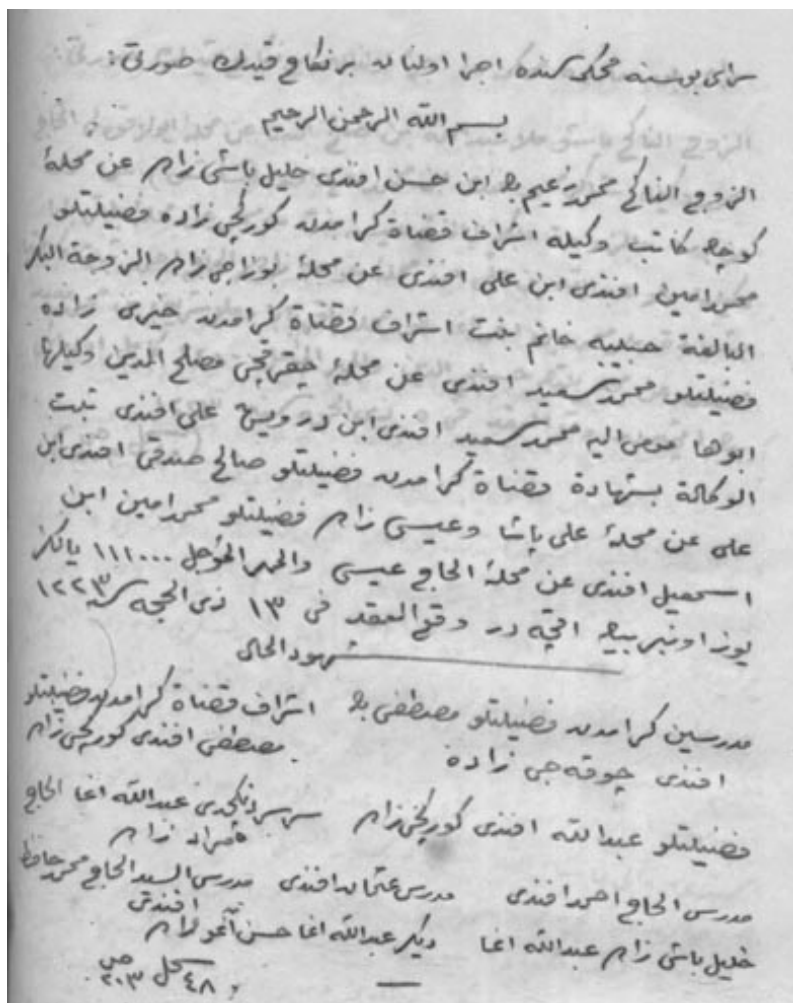 سراى بوسنه محكمه‌سنده اجرا اولنان بر نكاح قيدك صورتى:
بسم الله الرحمن الرحيم
الزوج الناكح محمد زعيم بك ابن حسن افندى خليل باشى زاده عن محلهٔ
كوچك كاتب وكيله اشراف قضاة كرامدن كوركجى زاده فضيلتلو
محمد امين افندى ابن على افندى عن محلهٔ بوزاجى زاده الزوجة البكر
البالغة حبيبه خانم بنت اشراف قضاة كرامدن خيرى زاده
فضيلتلو محمد سعيد افندى عن محلهٔ چقرقجى مصلح الدين وكيلها
ابوها مومى اليه محمد سعيد افندى ابن درويش على افندى ثبت
الوكالة بشهادة قضاة كرامدن فضيلتلو صالح صدقى افندى ابن
على عن محلهٔ على پاشا وعيسى زاده فضيلتلو محمد امين ابن
اسمعيل افندى عن محلهٔ الحاج عيسى والمهر المؤجل ١١١٠٠٠ يالكز
يوز اون بر بيك اقچه در وقع العقد فى ١٣ ذى الحجه سنه ١٢٢٣
شهود الحال
مدرسين كرامدن فضيلتلو مصطفى بك اشراف قضاة كرامدن فضيلتلو
افندى چوقه جى زاده مصطفى افندى كوركجى زاده
فضيلتلو عبدالله افندى كوركجى زاده عبدالله اغا الحاج
زاده
مدرس الحاج احمد افندى مدرس عثمان افندى مدرس السيد الحاج محمد حافظ
افندى
خليل باشى زاده عبدالله اغا ديكر عبدالله اغا حسن اغا
سجل ٤٨ ص ٢٠٣